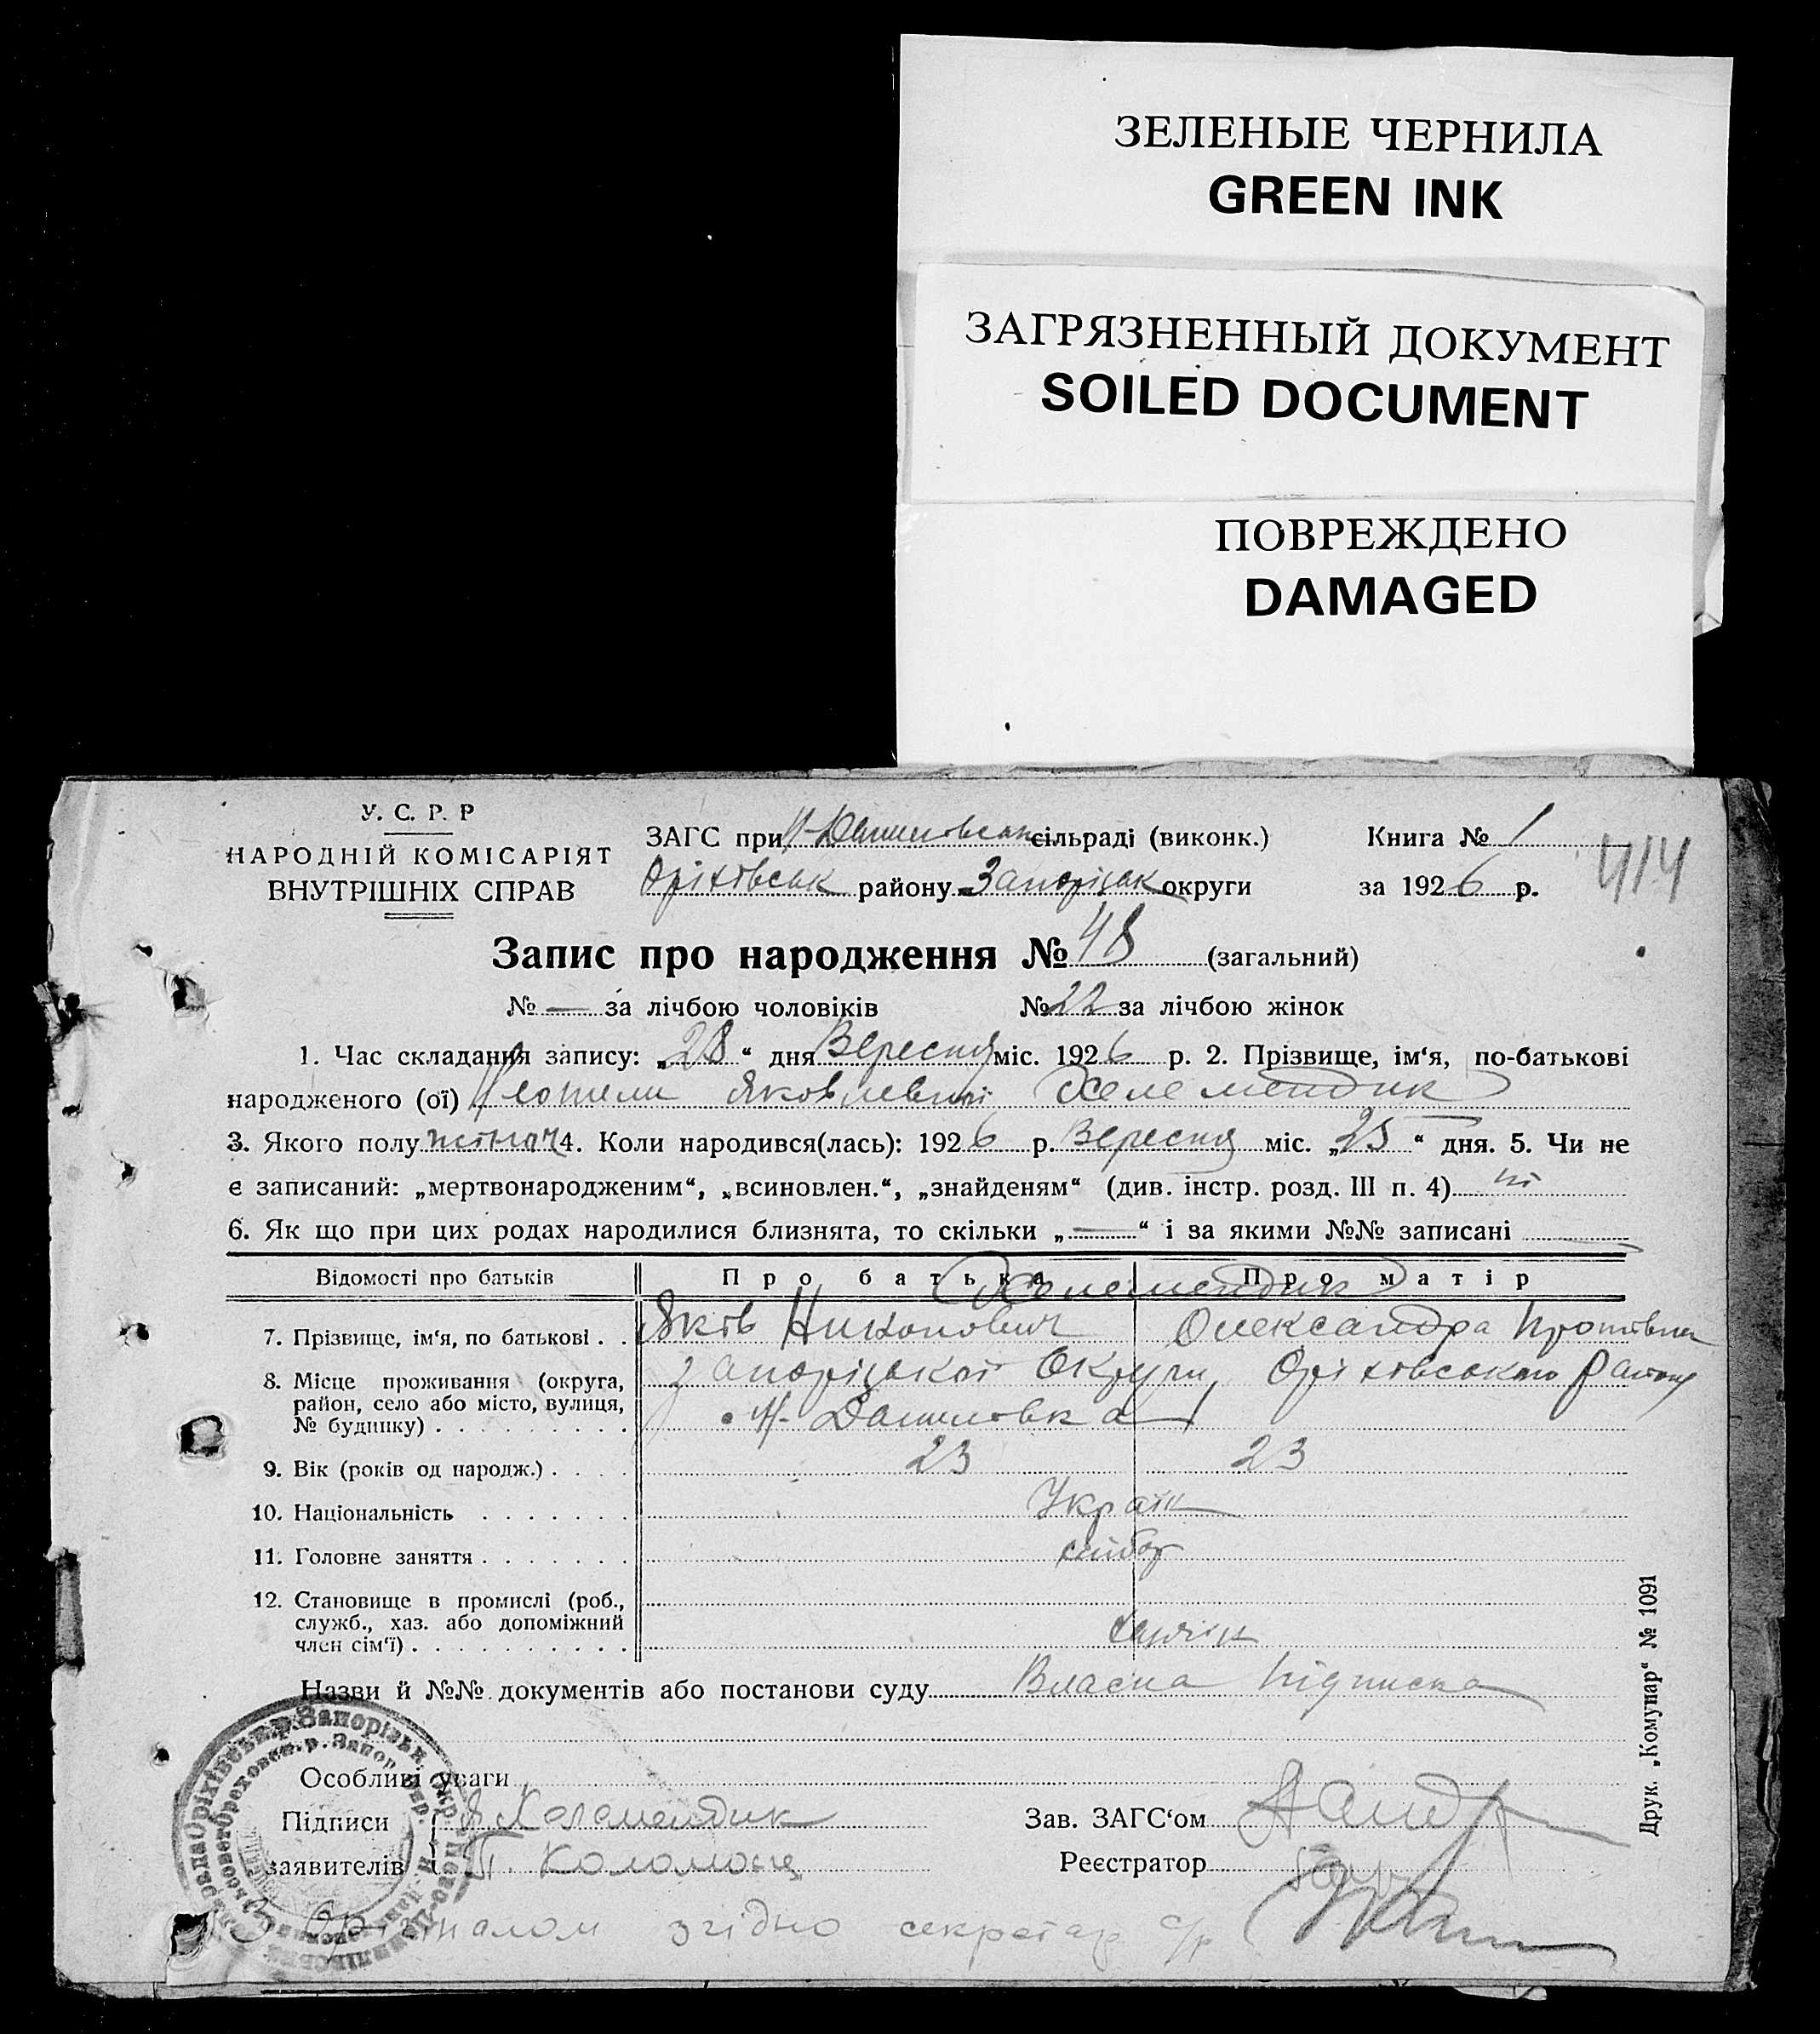 ЗЕЛЕНЫЕ ЧЕРНИЛА
GREEN INK
ЗАГРЯЗНЕННЫЙ ДОКУМЕНТ
SOILED DOCUMENT
ПОВРЕЖДЕНО
DAMAGED
У. С. Р. Р
НАРОДНІЙ КОМІСАРІЯТ
ВНУТРІШНІХ СПРАВ
ЗАГС при Н-Даниловськ сільраді (виконк.) Книга № 1
Оріховськ району Запоріськ округи за 1926 р. 414
Запис про народження № 48 (загальний)
№ — за лічбою чоловіків № 22 за лічбою жінок
1. Час складання запису: „28“ дня Вересня міс. 1926 р. 2. Прізвище, ім‘я, по-батькові
народженого (ої) Яковлевни
3. Якого полу жіноч 4. Коли народився(лась): 1926 р. Вересня міс. „25“ дня. 5. Чи не
є записаний: „мертвонародженим“, „всиновлен.“, „знайденям“ (див. інстр. розд. III п. 4) ні
6. Як що при цих родах народилися близнята, то скільки „—“ і за якими №№ записані
Відомості про батьків Про батька Про матір
7. Прізвище, ім‘я, по батькові . . Яків Никонович Олександра
8. Місце проживання (округа, Запоріської Округи, Оріховського Району
район, село або місто, вулиця,
№ будинку) Н-Даниловка
9. Вік (років од народж.) 23 23
10. Національність Україн
11. Головне заняття хлібор
12. Становище в промислі (роб.,
служб., хаз. або допоміжний
член сім‘ї)
Назви й №№ документів або постанови суду Власна підписка
Особливі уваги
Підписи Я Хелемендик Зав. ЗАГС‘ом
заявителів П. Коломоєц Реєстратор
З Орігіналом згідно секретар с/р
Друк. „Комунар“ № 1091